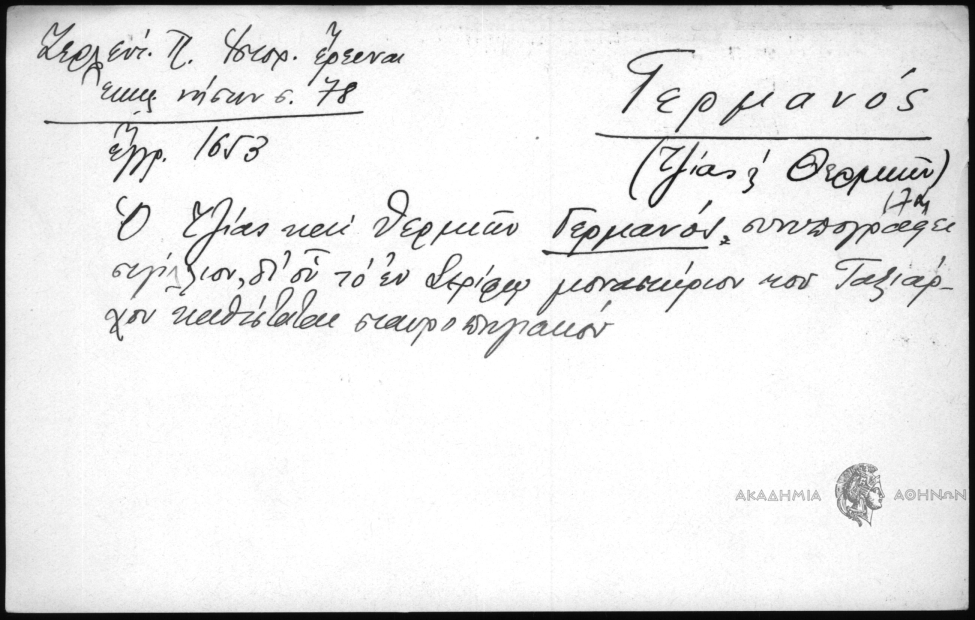 Ζερλέντ. Π. Ἱστορ. ἔρευναι
ἐκκλ νήσων σ. 78
ἔγγρ. 1653
Γερμανός
(Τζίας ἢ Θερμιῶν)
17 αἰ
Ὁ Τζίας καὶ Θερμιῶν Γερμανός, συνυπογράφει
σιγίλλιον, δι' οὗ τὸ ἐν Σερίφῳ μοναστήριον του Ταξιάρ-
χου καθίσταται σταυροπηγιακόν
ΑΚΑΔΗΜΙΑ ΑΘΗΝΩΝ